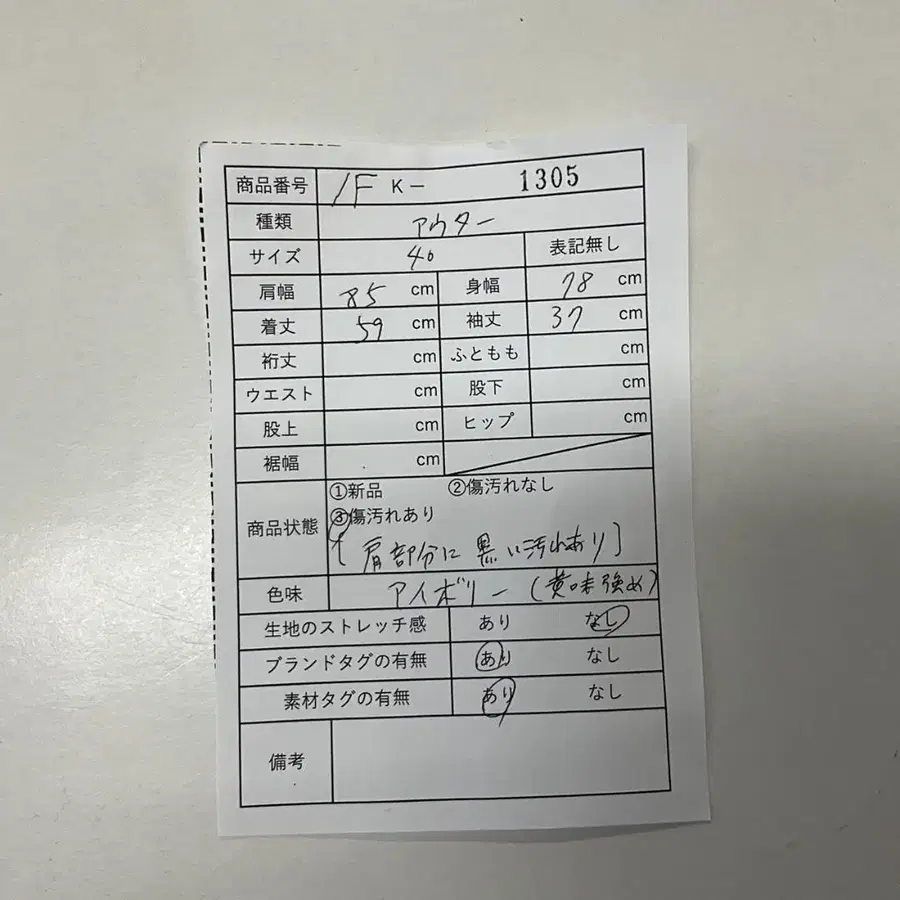 商品番号 1F K- 1305
種類 アウター
サイズ 40 表記無し
肩幅 85 cm 身幅 78 cm
着丈 59 cm 袖丈 37 cm
裄丈 cm ふともも cm
ウエスト cm 股下 cm
股上 cm ヒップ cm
裾幅 cm
①新品 ②傷汚れなし
商品状態 ③傷汚れあり
[肩部分に黒い汚れあり]
色味 アイボリー(黄味強め)
生地のストレッチ感 あり なし
ブランドタグの有無 あり なし
素材タグの有無 あり なし
備考